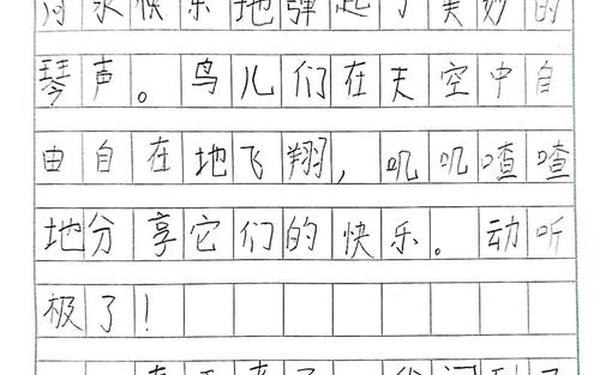 河水快乐地弹起了美妙的
琴声。鸟儿们在天空中自
由自在地飞翔，叽叽喳喳
地分享它们的快乐。动听
极了！
春天来了，我闻到了